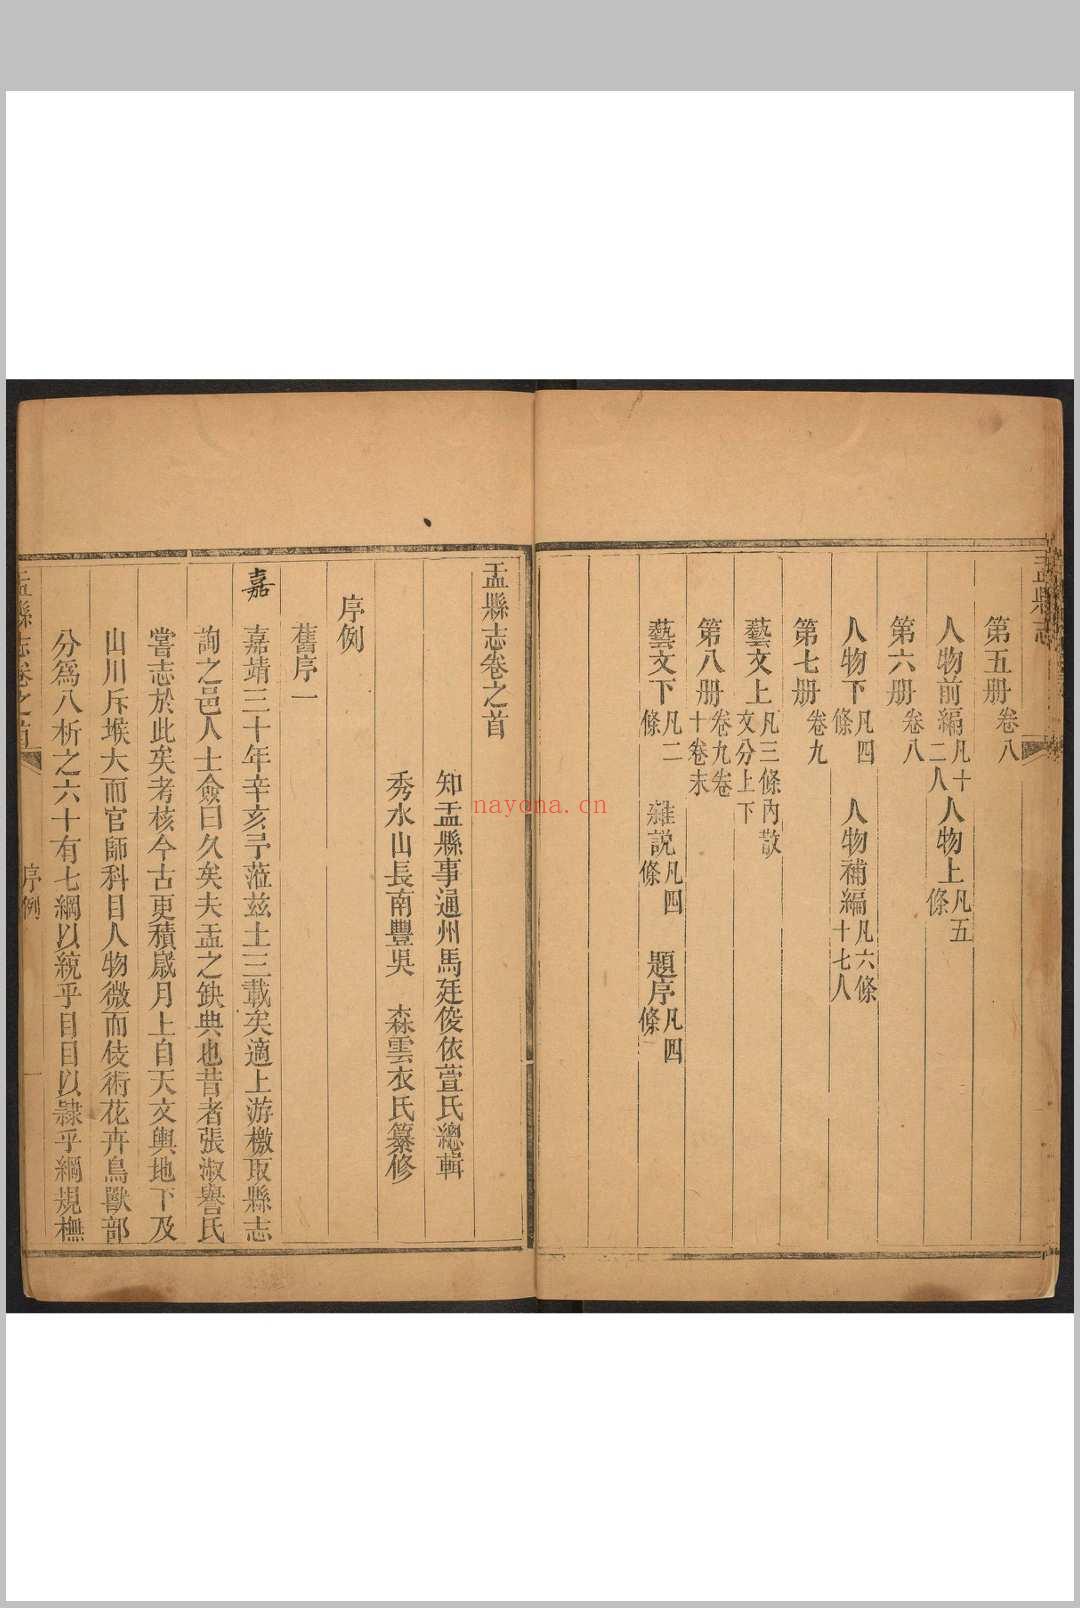 盂縣志
第五册 卷八
人物前編 凡十二人 人物上 凡五條
第六册 卷八
人物下 凡四條 人物補編 凡六條十七人
第七册 卷九
藝文上 凡三條內散文分上下
第八册 卷九卷十卷末
藝文下 凡二條 雜説 凡四條 題序 凡四條
盂縣志卷之首
知盂縣事通州馬廷俊依萱氏總輯
秀水山長南豐吳 森雲衣氏纂修
序例
舊序一
嘉 嘉靖三十年辛亥予蒞兹土三載矣適上游檄取縣志
詢之邑人士僉曰久矣夫盂之缺典也昔者張淑譽氏
嘗志於此矣考核今古更積歲月上自天文輿地下及
山川斥堠大而官師科目人物微而伎術花卉鳥獸部
分爲八析之六十有七綱以統乎目目以隷乎綱規橅
盂縣志卷之首 序例 一
nayona.cn